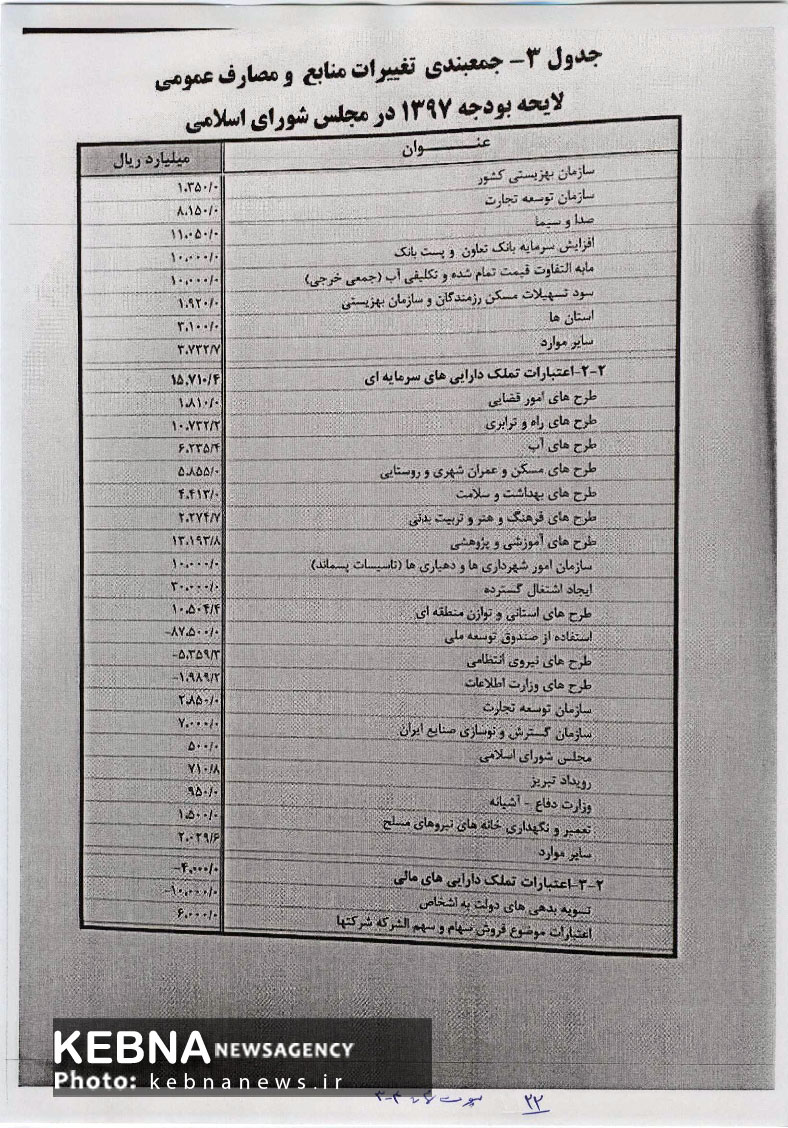 جدول ۳- جمعبندی تغییرات منابع و مصارف عمومی
لایحه بودجه ۱۳۹۷ در مجلس شورای اسلامی
عنـــــــوان میلیارد ریال
سازمان بهزیستی کشور ۱،۳۵۰/۰
سازمان توسعه تجارت ۸،۱۵۰/۰
صدا و سیما ۱۱،۰۵۰/۰
افزایش سرمایه بانک تعاون و پست بانک ۱۰،۰۰۰/۰
مابه التفاوت قیمت تمام شده و تکلیفی آب (جمعی خرجی) ۱۰،۰۰۰/۰
سود تسهیلات مسکن رزمندگان و سازمان بهزیستی ۱،۹۲۰/۰
استان ها ۳،۱۰۰/۰
سایر موارد ۳،۷۳۲/۷
۲-۲-اعتبارات تملک دارایی های سرمایه ای ۱۵،۷۱۰/۴
طرح های امور قضایی ۱،۸۱۰/۰
طرح های راه و ترابری ۱۰،۷۳۲/۲
طرح های آب ۶،۲۳۵/۴
طرح های مسکن و عمران شهری و روستایی ۵،۸۵۵/۰
طرح های بهداشت و سلامت ۴،۴۱۳/۰
طرح های فرهنگ و هنر و تربیت بدنی ۲،۲۷۴/۷
طرح های آموزشی و پژوهشی ۱۳،۱۹۳/۸
سازمان امور شهرداری ها و دهیاری ها (تاسیسات پسماند) ۱۰،۰۰۰/۰
ایجاد اشتغال گسترده ۳۰،۰۰۰/۰
طرح های استانی و توازن منطقه ای ۱۰،۵۰۴/۴
استفاده از صندوق توسعه ملی -۸۷،۵۰۰/۰
طرح های نیروی انتظامی -۵،۳۵۹/۳
طرح های وزارت اطلاعات -۱،۹۸۹/۲
سازمان توسعه تجارت ۲،۸۵۰/۰
سازمان گسترش و نوسازی صنایع ایران ۷،۰۰۰/۰
مجلس شورای اسلامی ۵۰۰/۰
رویداد تبریز ۷۱۰/۸
وزارت دفاع - آشیانه ۹۵۰/۰
تعمیر و نگهداری خانه های نیروهای مسلح ۱،۵۰۰/۰
سایر موارد ۲،۰۲۹/۶
۲-۳-اعتبارات تملک دارایی های مالی -۴،۰۰۰/۰
تسویه بدهی های دولت به اشخاص -۱۰،۰۰۰/۰
اعتبارات موضوع فروش سهام و سهم الشرکه شرکتها ۶،۰۰۰/۰
KEBNA NEWSAGENCY
Photo: kebnanews.ir
۲۲